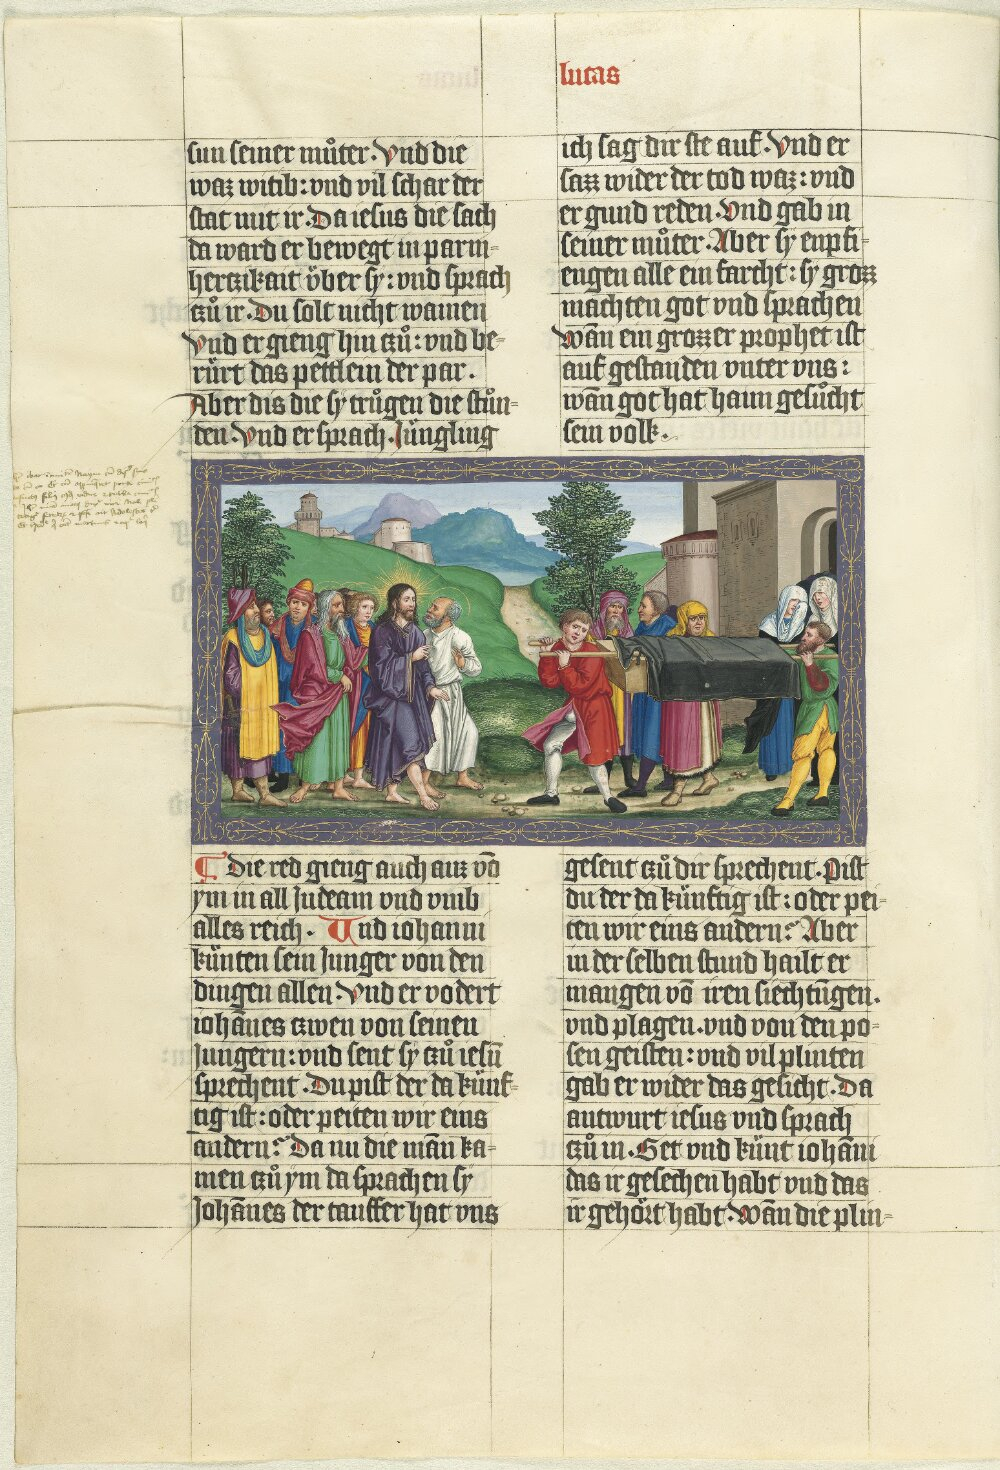 lucas
sun seiner můter. Vnd die
waz witib: vnd vil schar der
stat mit ir. Da iesus die sach
da ward er bewegt in parm-
hertzikait vͦber sy: vnd sprach
tzů ir. Du solt nicht wainen
Vnd er gieng hin tzů: vnd be-
rürt das pettlein der par.
Aber dis die sy trůgen die stůn-
den. Vnd er sprach. Jüngling
ich sag dir ste auf. Vnd er
sazz wider der tod waz: vnd
er gund reden. Vnd gab in
seiner můter. Aber sy enpfi-
engen alle ein farcht: sy grozz
machten got vnd sprachen
Wān ein grozzer prophet ist
auf gestanden vnter vns:
wān got hat haim gesůcht
sein volk.
Die red gieng auch auz vō
ym in all Judeam vnd vmb
alles reich. Und iohanni
künten sein Junger von den
dingen allen. Vnd er vodert
iohānes tzwen von seinen
Jungern: vnd sent sy tzů iesū
sprechent. Du pist der da künf-
tig ist: oder peiten wir eins
andern? Da nu die mān ka-
men tzů ym da sprachen sy
Johānes der tauffer hat vns
gesent tzů dir sprechent. Pist
du der da künftig ist: oder pei-
ten wir eins andern? Aber
in der selben stund hailt er
mangen vō iren siechtūgen.
vnd plagen. vnd von den po-
sen geisten: vnd vil plinten
gab er wider das gesicht. Da
antwurt iesus vnd sprach
tzů in. Get vnd künt iohāni
das ir gesechen habt vnd das
ir gehört habt. Wān die plin-